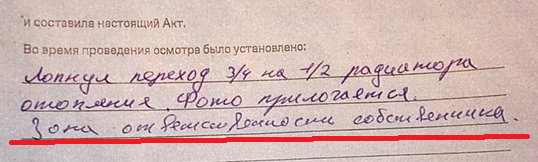 и составила настоящий Акт.
Во время проведения осмотра было установлено:
Лопнул переход 3/4 на 1/2 радиатора
отопления. Фото прилогается.
Зона ответственности собственника.